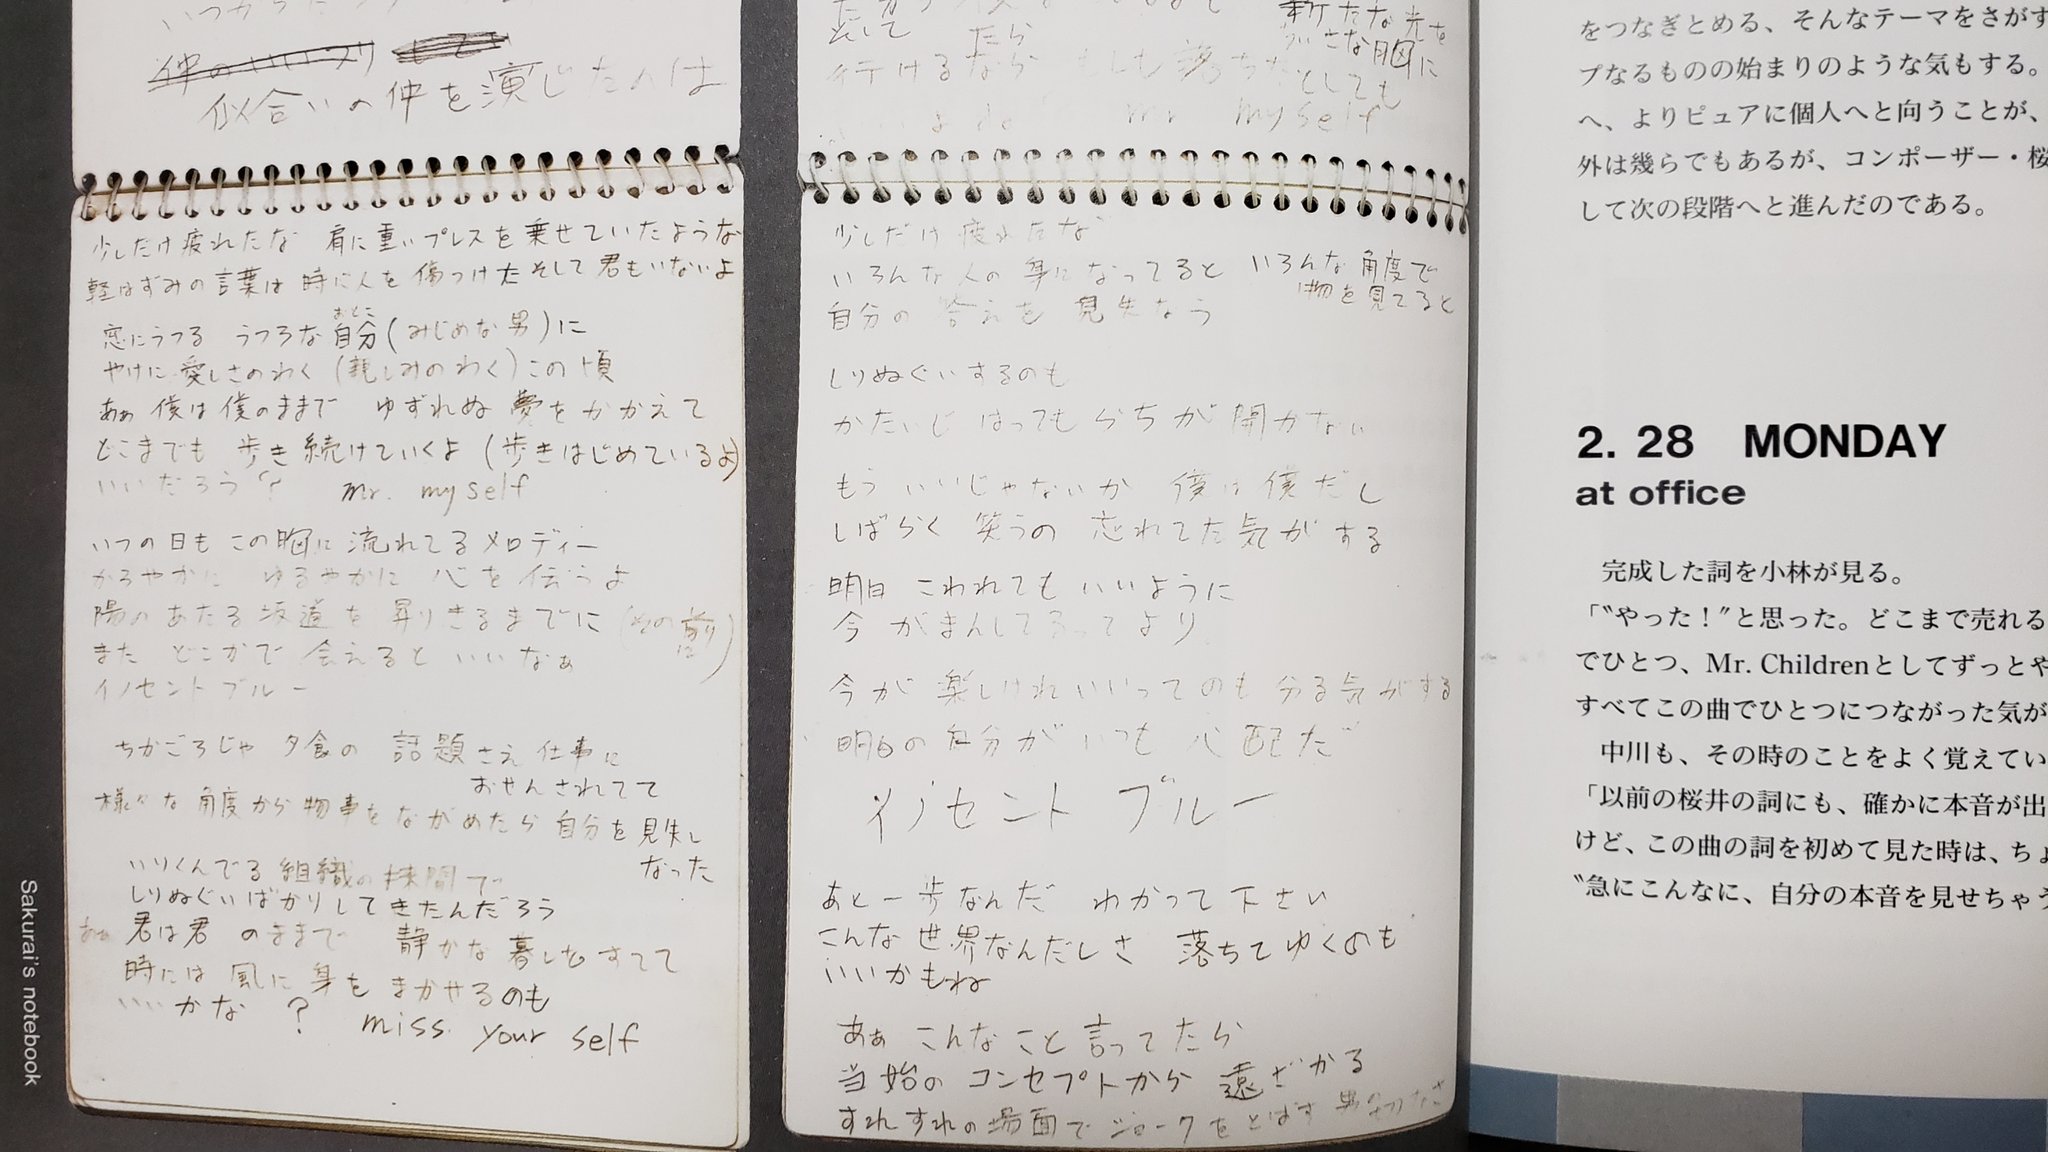 いつからだ
仲のいいフリ
似合いの仲を演じたのは
少しだけ疲れたな 肩に重いプレスを乗せていたような
軽はずみの言葉は時に人を傷つけた そして君もいないよ
恋にうつろ うつろな自分(みじめな男)に
おとこ
やけに愛しさのわく(親しみのわく)この頃
あぁ 僕は僕のままで ゆずれぬ夢をかかえて
どこまでも 歩き続けていくよ(歩きはじめているよ)
いいだろう? mr. my self
いつの日も この胸に流れてるメロディー
かろやかに ゆるやかに 心を伝うよ
陽のあたる坂道を昇りきるまでに(その前に)
また どこかで 会えるといいなぁ
イノセントブルー
ちかごろじゃ 夕食の 話題さえ仕事に
おせんされてて
様々な角度から物事をながめたら自分を見失し
なった
いりくんでる組織の狭間で
しりぬぐいばかりしてきたんだろう
あぁ 君は君 のままで 静かな暮しもすてて
時には風に身をまかせるのも
いいかな ? miss. your self
Sakurai's notebook
新たな光を
小さな胸に
行けるなら もしも落ちたとしても
mr my self
少しだけ疲れたな
いろんな人の身になってると いろんな角度で
物を見てると
自分の 答えを 見失なう
しりぬぐいするのも
かたいじ はっても らちが 開かない
もう いいじゃないか 僕は僕だし
しばらく 笑うの 忘れてた気がする
明日 こわれてもいいように
今 がまんしてるってより
今が楽しけれいいってのも分る気がする
明日の自分がいつも心配だ
イノセント ブルー
あと一歩なんだ わかって下さい
こんな世界なんだしさ 落ちてゆくのも
いいかもね
あぁ こんなこと言ってたら
当始の コンセプトから 遠ざかる
すれすれの場面でジョークをとばす 男の切なさ
をつなぎとめる、そんなテーマをさがす
プなるものの始まりのような気もする。
へ、よりピュアに個人へと向うことが、
外は幾らでもあるが、コンポーザー・桜
して次の段階へと進んだのである。
2. 28 MONDAY
at office
完成した詞を小林が見る。
「〝やった！〟と思った。どこまで売れる
でひとつ、Mr. Childrenとしてずっとや
すべてこの曲でひとつにつながった気が
中川も、その時のことをよく覚えてい
「以前の桜井の詞にも、確かに本音が出
けど、この曲の詞を初めて見た時は、ちょ
〝急にこんなに、自分の本音を見せちゃう